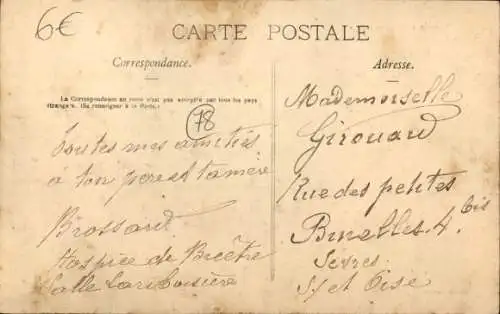 6€
CARTE POSTALE
Correspondance.
Adresse.
La Correspondance au recto n'est pas acceptée par tous les pays
étrangers. (Se renseigner à la Poste.)
78
Toutes mes amitiés
à ton père et ta mère
Brossard
Hospice de Bicêtre
Salle Lariboisière
Mademoiselle
Girouard
Rue des petites
Bruelles. 4 bis
Sèvres
S/ et Oise